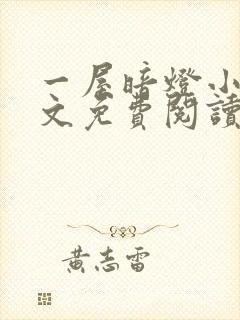 一屋暗燈小
文免費閱讀
黃志雷